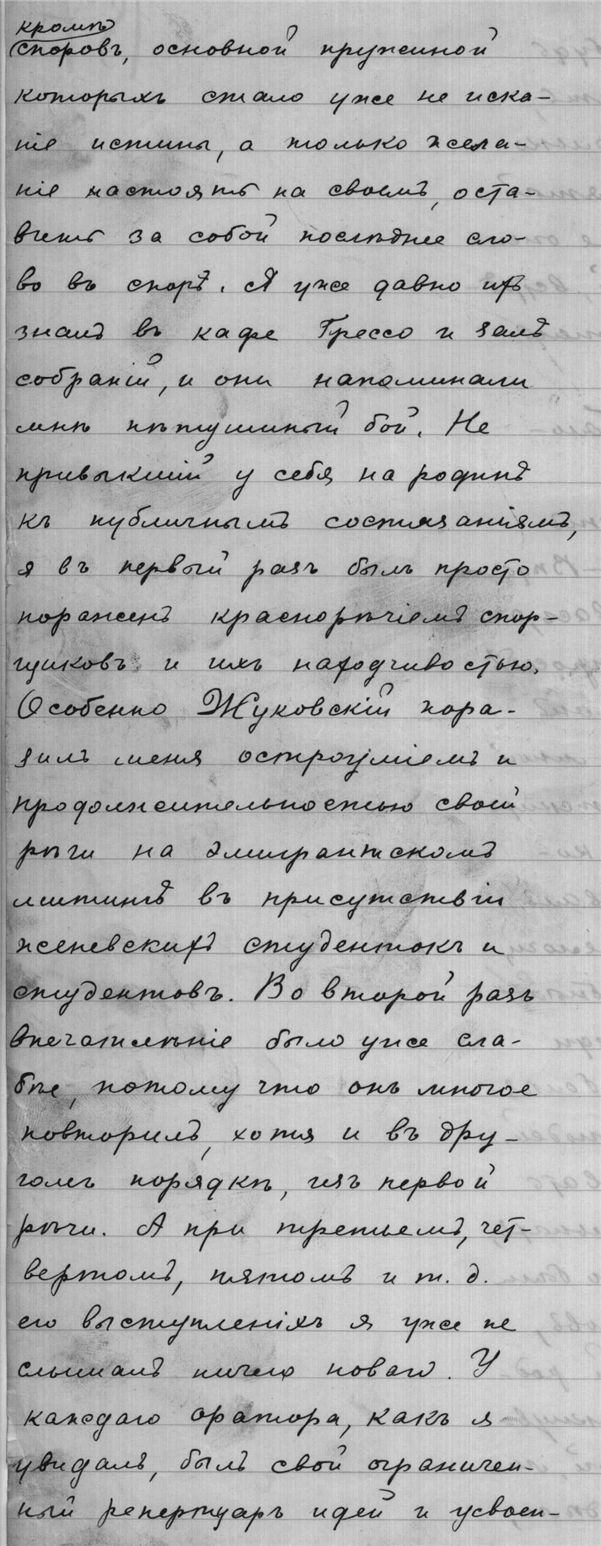 кромѣ
споровъ, основной пружиной
которыхъ стало уже не иска-
ніе истины, а только жела-
ніе настоять на своемъ, оста-
вить за собой послѣднее сло-
во въ спорѣ. Я уже давно ихъ
зналъ въ кафе Грессо и залѣ
собраній, и они напоминали
мнѣ пѣтушиный бой. Не
привыкшій у себя на родинѣ
къ публичнымъ состязаніямъ,
я въ первый разъ былъ просто
пораженъ краснорѣчіемъ спор-
щиковъ и ихъ находчивостью.
Особенно Жуковскій пора-
зилъ меня остроуміемъ и
продолжительностью своей
рѣчи на эмигрантскомъ
митингѣ въ присутствіи
женевскихъ студентокъ и
студентовъ. Во второй разъ
впечатлѣніе было уже сла-
бѣе, потому что онъ многое
повторилъ, хотя и въ дру-
гомъ порядкѣ, изъ первой
рѣчи. А при третьемъ, чет-
вертомъ, пятомъ и т. д.
его выступленіяхъ я уже не
слышалъ ничего новаго. У
каждаго оратора, какъ я
увидалъ, былъ свой ограничен-
ный репертуаръ идей и усвоен-